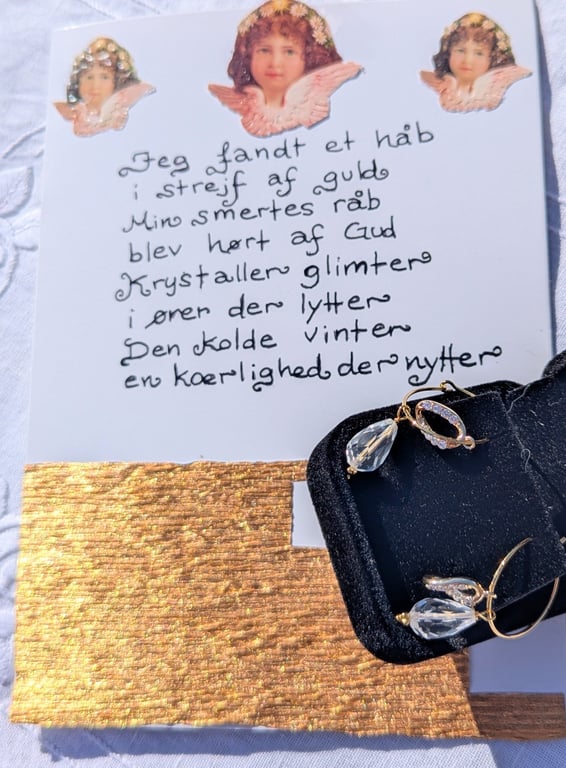 Jeg fandt et håb
i strejf af guld
Min smertes råb
blev hørt af Gud
Krystaller glimter
i ører der lytter
Den kolde vinter
en kærlighed der nytter